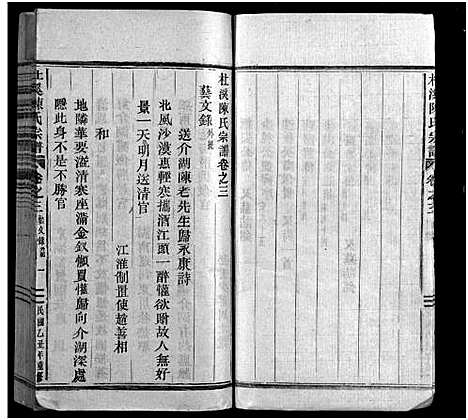 杜溪陳氏宗譜
卷之三
杜溪陳氏宗譜卷之三
藝文錄外集
送介湖陳老先生歸永康詩
北風沙漠惠輕寒攜酒江頭一醉懽欲贈故人無好
景一天明月送清官
江淮制置使趙善相
和
地隣華要滋清寒座滿金釵懶買懽歸向介湖深處
隱此身不是不勝官
杜溪陳氏宗譜
卷之三
藝文錄
一
民國乙丑年重修